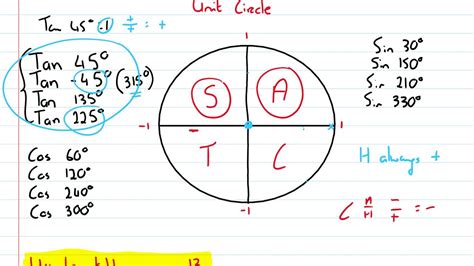 Unit Circle
Tan 45° 1 + / + = +
Tan 45°
Tan -45° (315°)
Tan 135°
Tan 225°
Cos 60°
Cos 120°
Cos 240°
Cos 300°
1
S A
-1 1
T C
-1
Sin 30°
Sin 150°
Sin 210°
Sin 330°
H always +
- / + = -